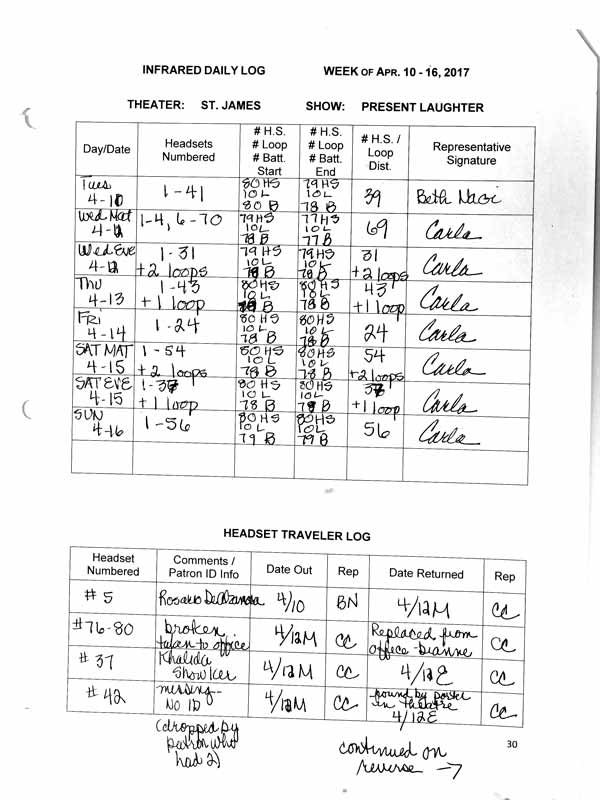 INFRARED DAILY LOG WEEK OF APR. 10 - 16, 2017
THEATER: ST. JAMES SHOW: PRESENT LAUGHTER
Day/Date Headsets Numbered # H.S. # Loop # Batt. Start # H.S. # Loop # Batt. End # H.S. / Loop Dist. Representative Signature
Tues 4-11 1-41 80 HS 10 L 80 B 79 HS 10 L 78 B 39 Beth
Wed Mat 4-12 1-4, 6-70 79 HS 10 L 78 B 77 HS 10 L 77 B 69 Carla
Wed Eve 4-12 1-31 +2 loops 79 HS 10 L 78 B 79 HS 10 L 78 B 31 +2 loops Carla
Thu 4-13 1-43 +1 loop 80 HS 10 L 78 B 80 HS 10 L 78 B 43 +1 loop Carla
FRI 4-14 1-24 80 HS 10 L 78 B 80 HS 10 L 78 B 24 Carla
SAT MAT 4-15 1-54 +2 loops 80 HS 10 L 78 B 80 HS 10 L 78 B 54 +2 loops Carla
SAT EVE 4-15 +1 loop 80 HS 10 L 78 B 80 HS 10 L 78 B +1 loop Carla
SUN 4-16 1-56 80 HS 10 L 79 B 80 HS 10 L 79 B 56 Carla
HEADSET TRAVELER LOG
Headset Numbered Comments / Patron ID Info Date Out Rep Date Returned Rep
# 5 Rosario 4/10 BN 4/12M CC
#76-80 broken taken to office 4/12M CC Replaced from office - Dianne CC
# 37 Khalida Showker 4/12M CC 4/12E CC
# 42 missing-- NO ID 4/12M CC found by porter in theatre 4/12E CC
(dropped by patron who had 2)
continued on reverse →
30